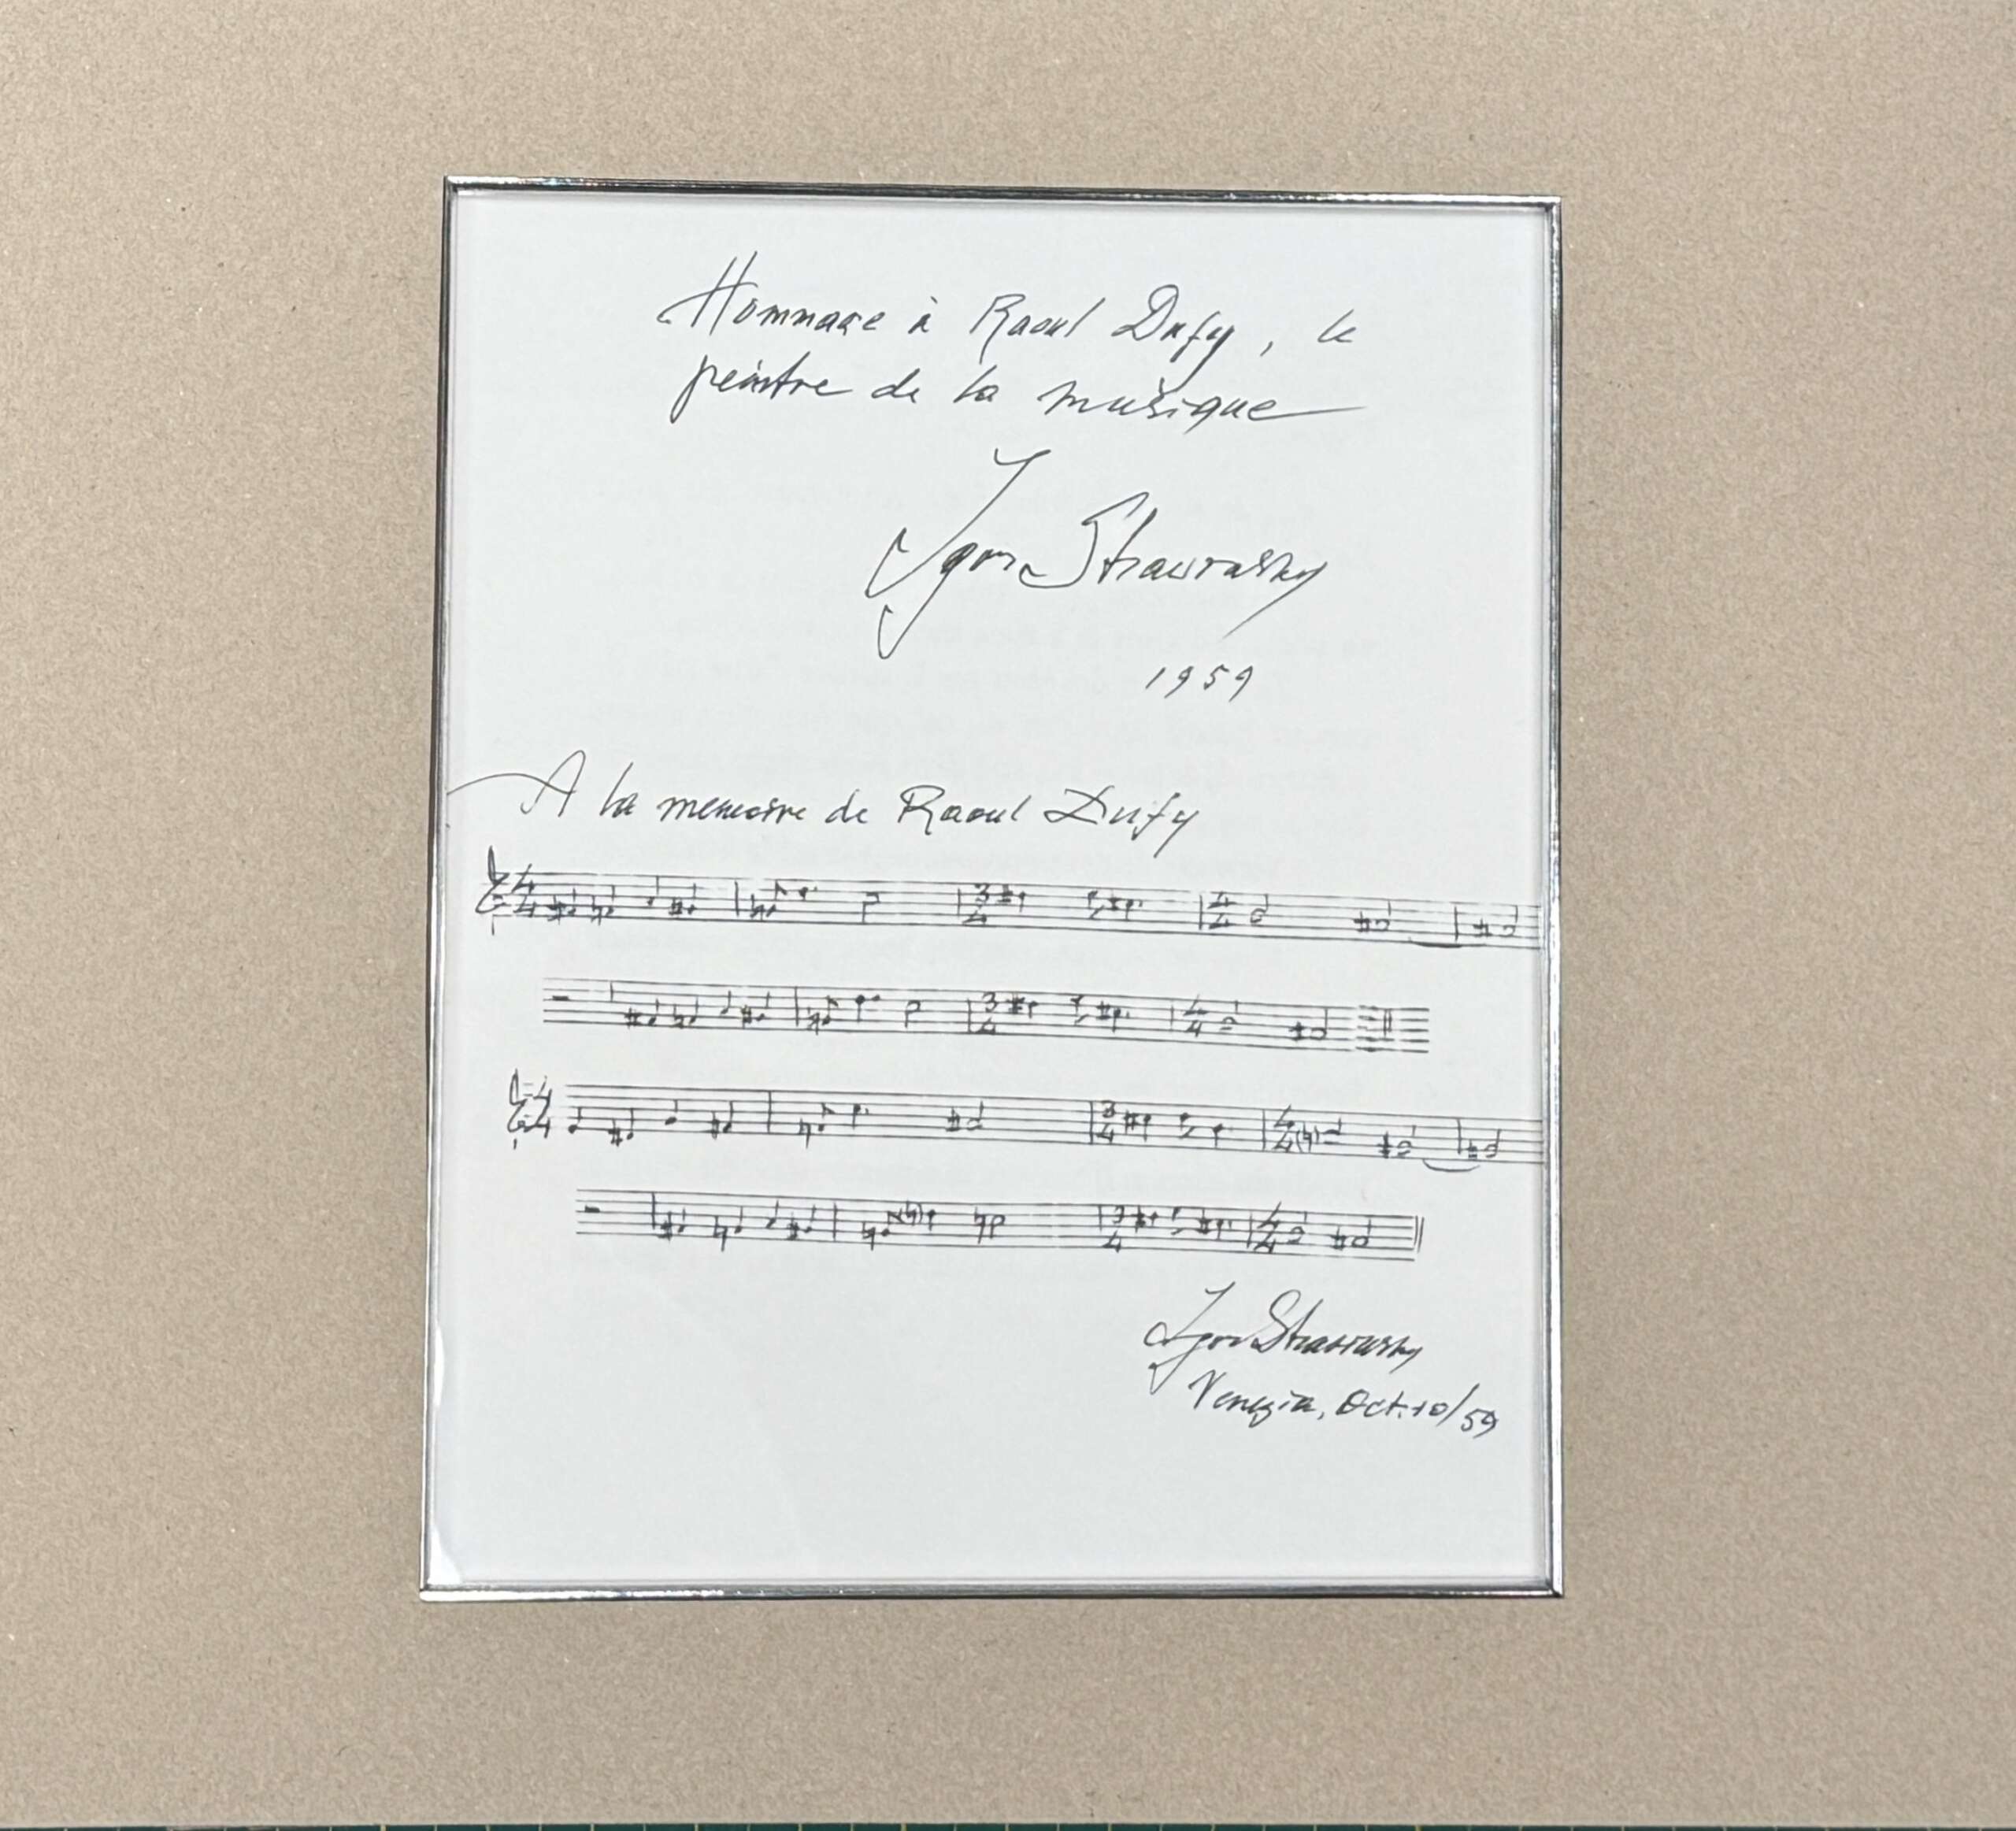 Hommage à Raoul Dufy, le
peintre de la musique
Igor Strawinsky
1959
A la memoire de Raoul Dufy
4/4 3/4 4/4
3/4 4/4
4/4 3/4 4/4
3/4 4/4
Igor Strawinsky
Venezia, Oct. 10/59